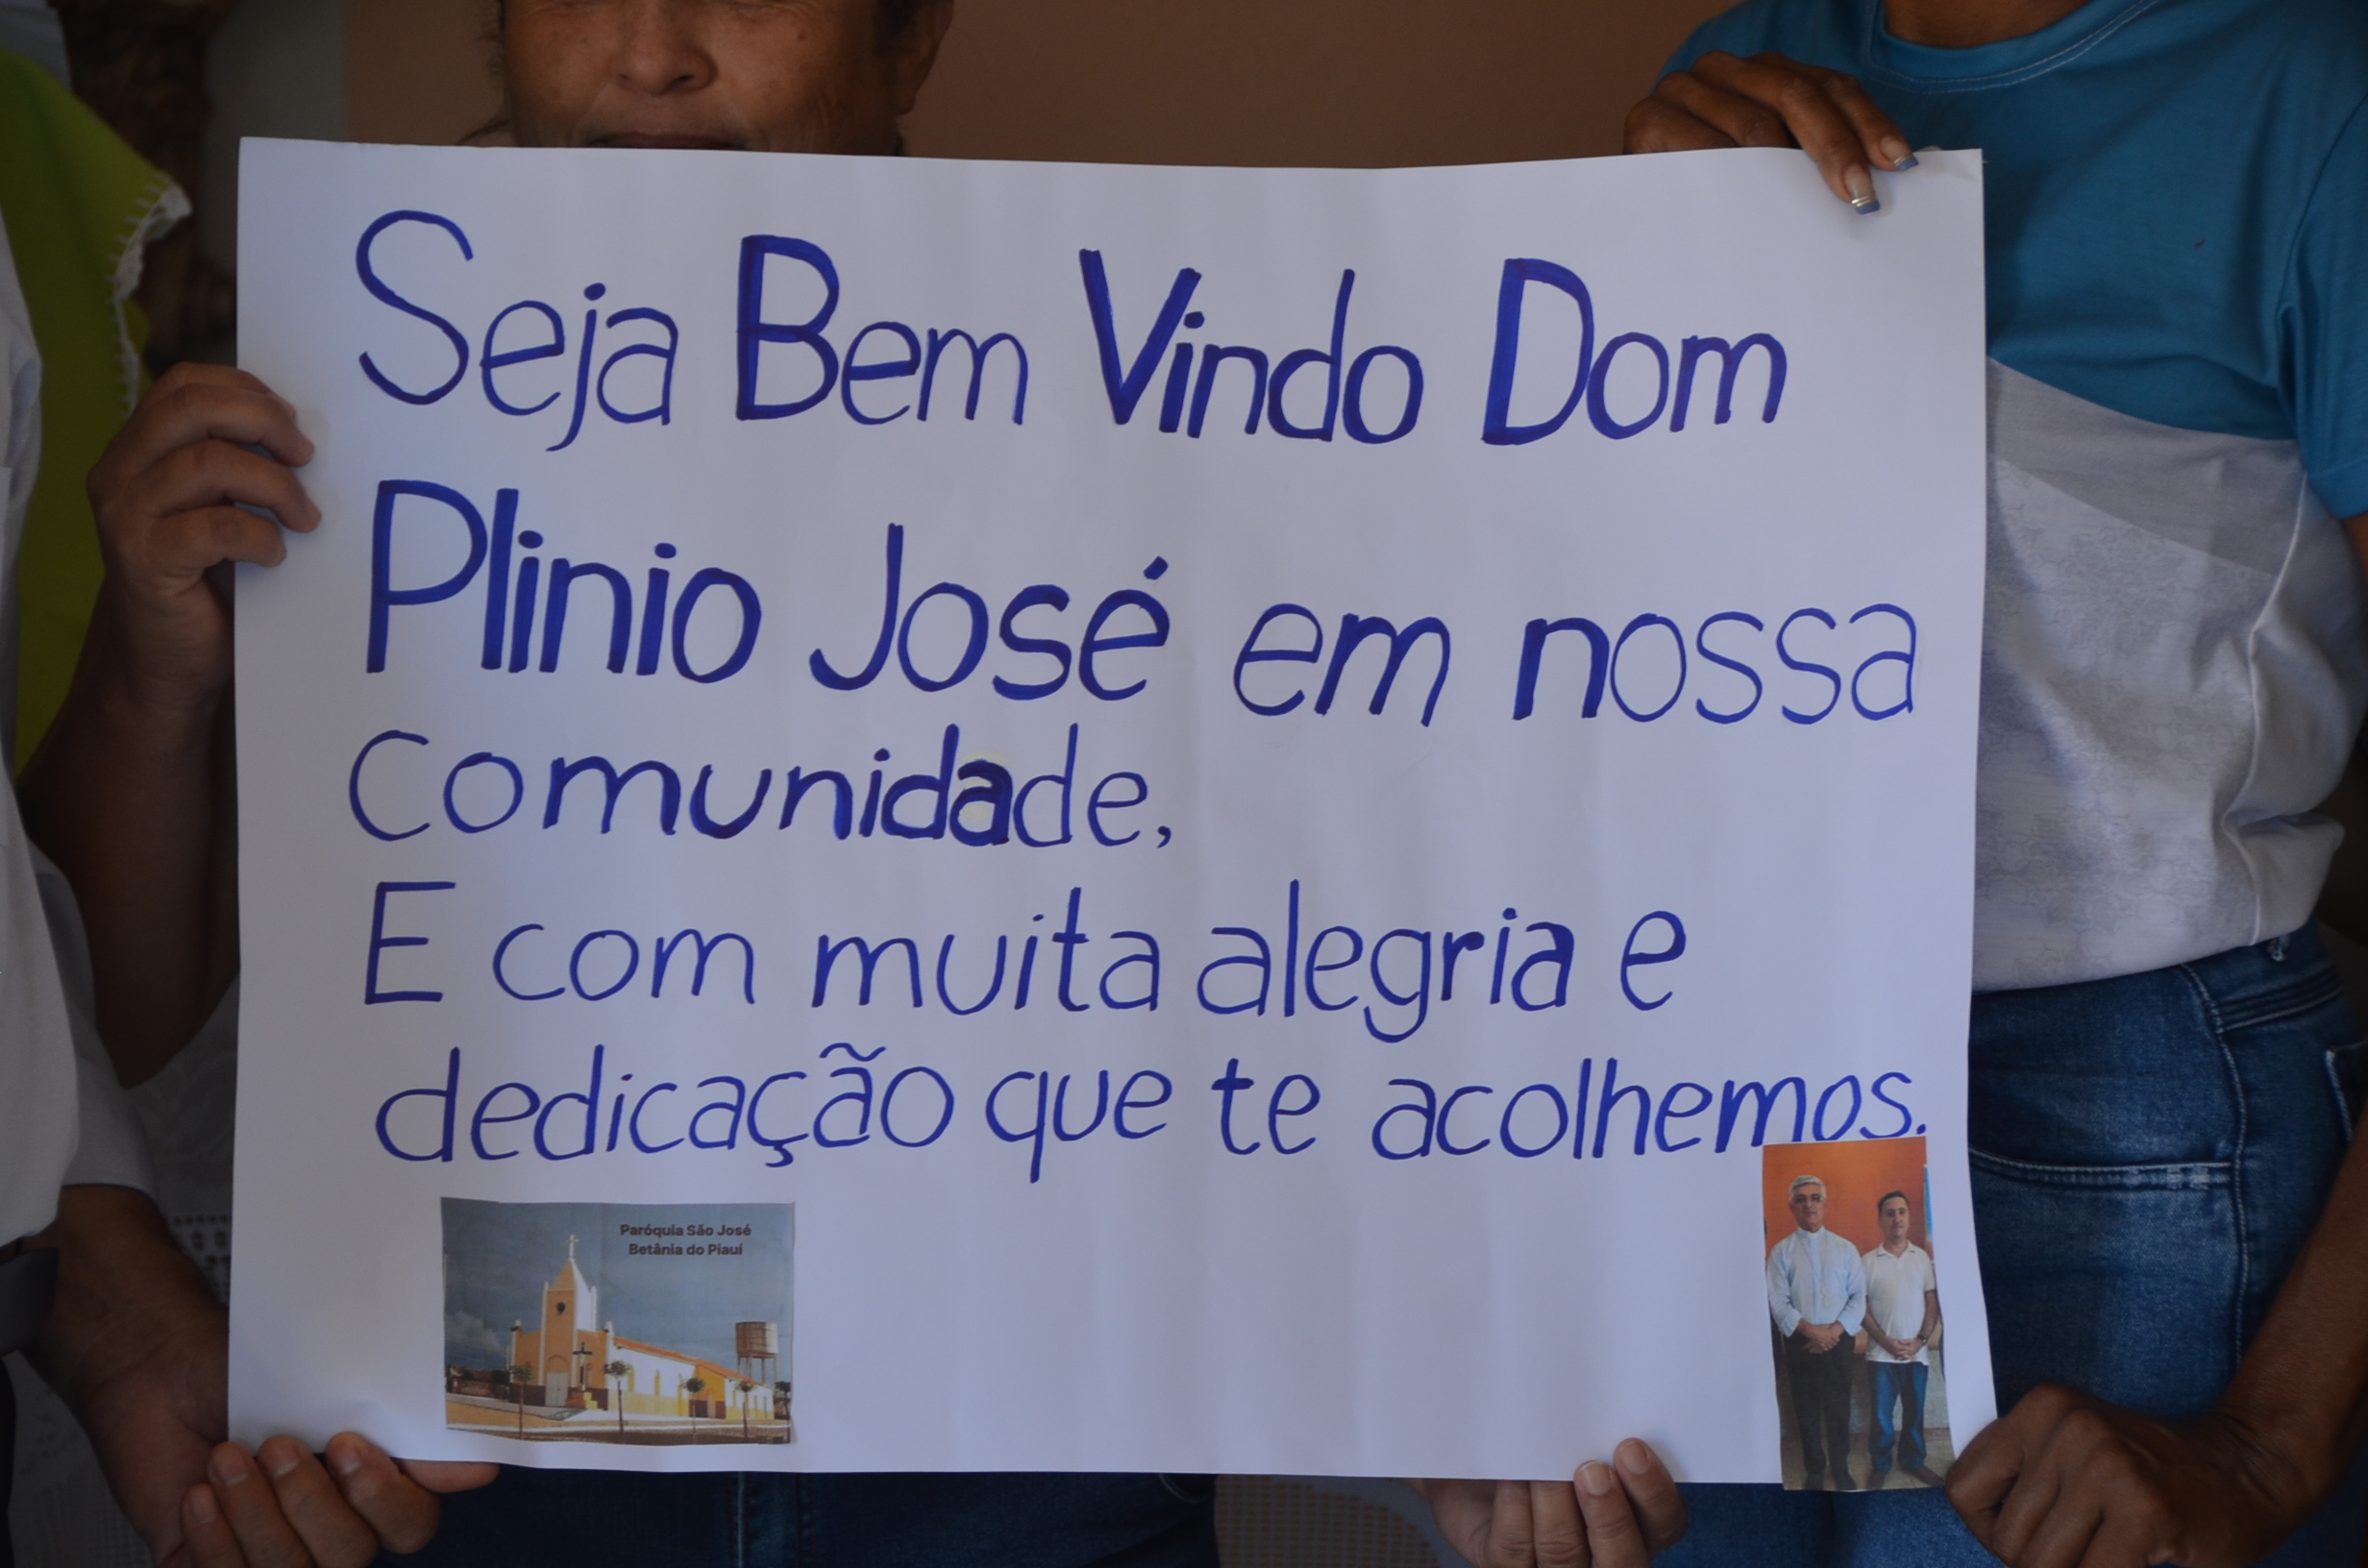 Seja Bem Vindo Dom
Plinio José em nossa
Comunidade,
E com muita alegria e
dedicação que te acolhemos.
Paróquia São José
Betânia do Piauí